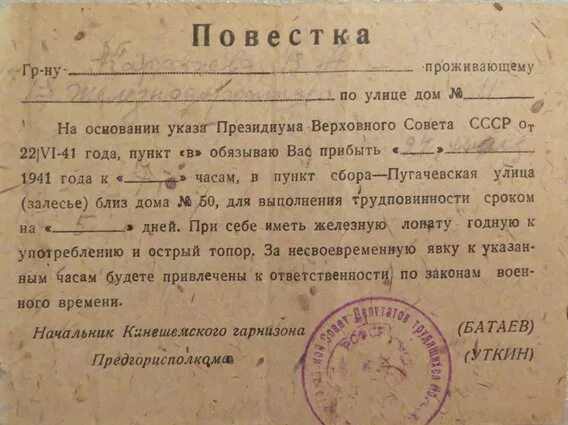 Повестка
Гр-ну проживающему
по улице дом № 11
На основании указа Президиума Верховного Совета СССР от
22|VI-41 года, пункт «в» обязываю Вас прибыть «24»
1941 года к « » часам, в пункт сбора—Пугачевская улица
(залесье) близ дома № 50, для выполнения трудповинности сроком
на « 5 » дней. При себе иметь железную лопату годную к
употреблению и острый топор. За несвоевременную явку к указан-
ным часам будете привлечены к ответственности по законам воен-
ного времени.
Начальник Кинешемского гарнизона (БАТАЕВ)
Предгорисполкома (УТКИН)
Совет Депутатов трудящихся
РСФСР